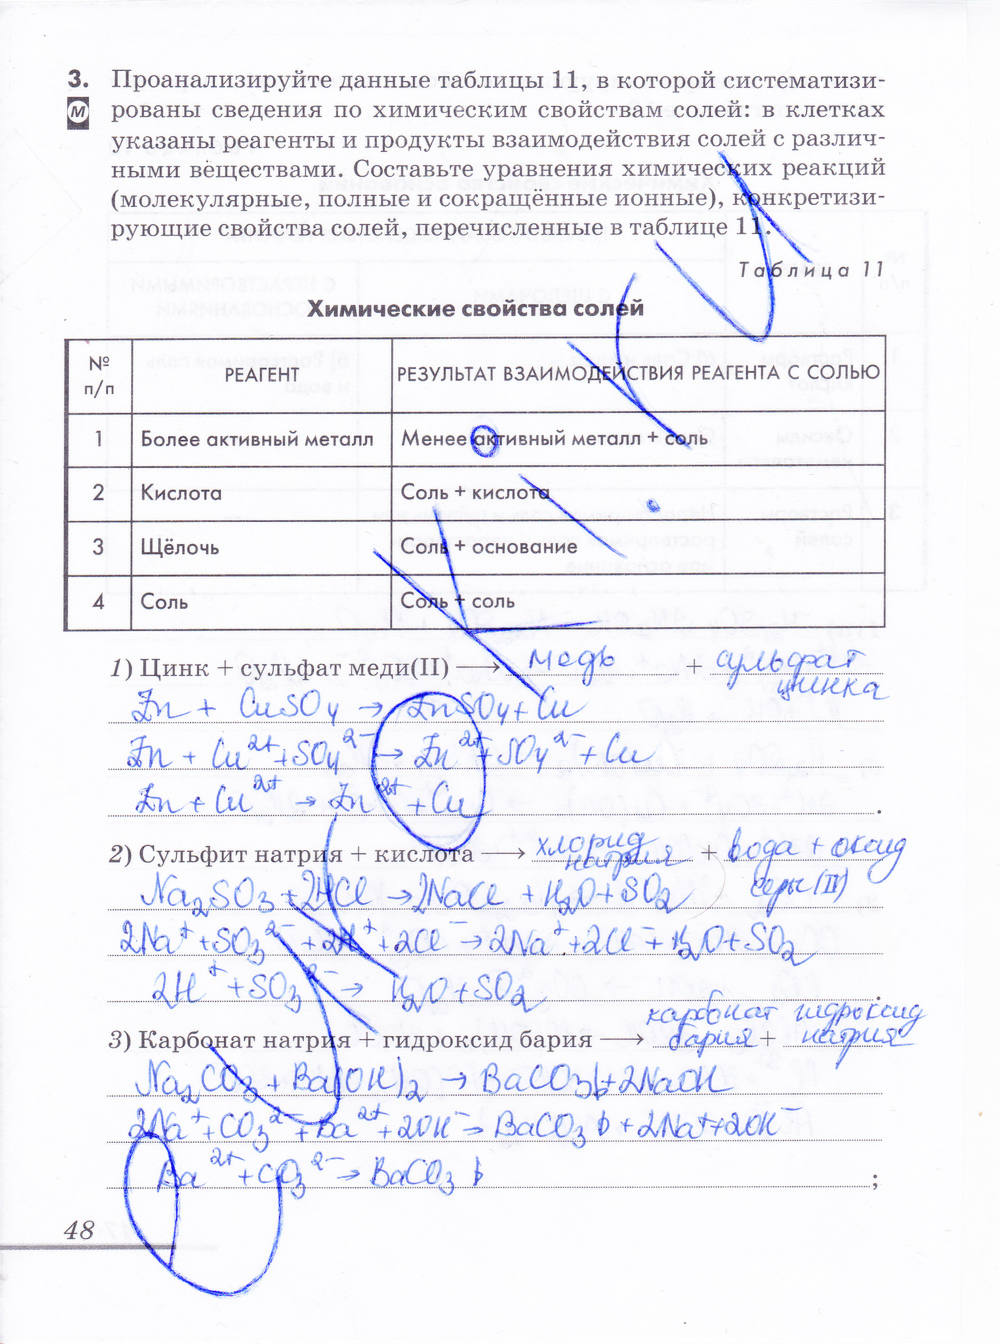 3. Проанализируйте данные таблицы 11, в которой систематизи-
М рованы сведения по химическим свойствам солей: в клетках
указаны реагенты и продукты взаимодействия солей с различ-
ными веществами. Составьте уравнения химических реакций
(молекулярные, полные и сокращённые ионные), конкретизи-
рующие свойства солей, перечисленные в таблице 11.
Таблица 11
Химические свойства солей
№ п/п РЕАГЕНТ РЕЗУЛЬТАТ ВЗАИМОДЕЙСТВИЯ РЕАГЕНТА С СОЛЬЮ
1 Более активный металл Менее активный металл + соль
2 Кислота Соль + кислота
3 Щёлочь Соль + основание
4 Соль Соль + соль
1) Цинк + сульфат меди(II) → медь + сульфат
цинка
Zn + CuSO4 → ZnSO4 + Cu
Zn + Cu²⁺ + SO4²⁻ → Zn²⁺ + SO4²⁻ + Cu
Zn + Cu²⁺ → Zn²⁺ + Cu .
2) Сульфит натрия + кислота → хлорид натрия + вода + оксид
серы (IV)
Na2SO3 + 2HCl → 2NaCl + H2O + SO2
2Na⁺ + SO3²⁻ + 2H⁺ + 2Cl⁻ → 2Na⁺ + 2Cl⁻ + H2O + SO2
2H⁺ + SO3²⁻ → H2O + SO2 .
3) Карбонат натрия + гидроксид бария → карбонат бария + гидроксид натрия
Na2CO3 + Ba(OH)2 → BaCO3↓ + 2NaOH
2Na⁺ + CO3²⁻ + Ba²⁺ + 2OH⁻ → BaCO3↓ + 2Na⁺ + 2OH⁻
Ba²⁺ + CO3²⁻ → BaCO3↓ ;
48